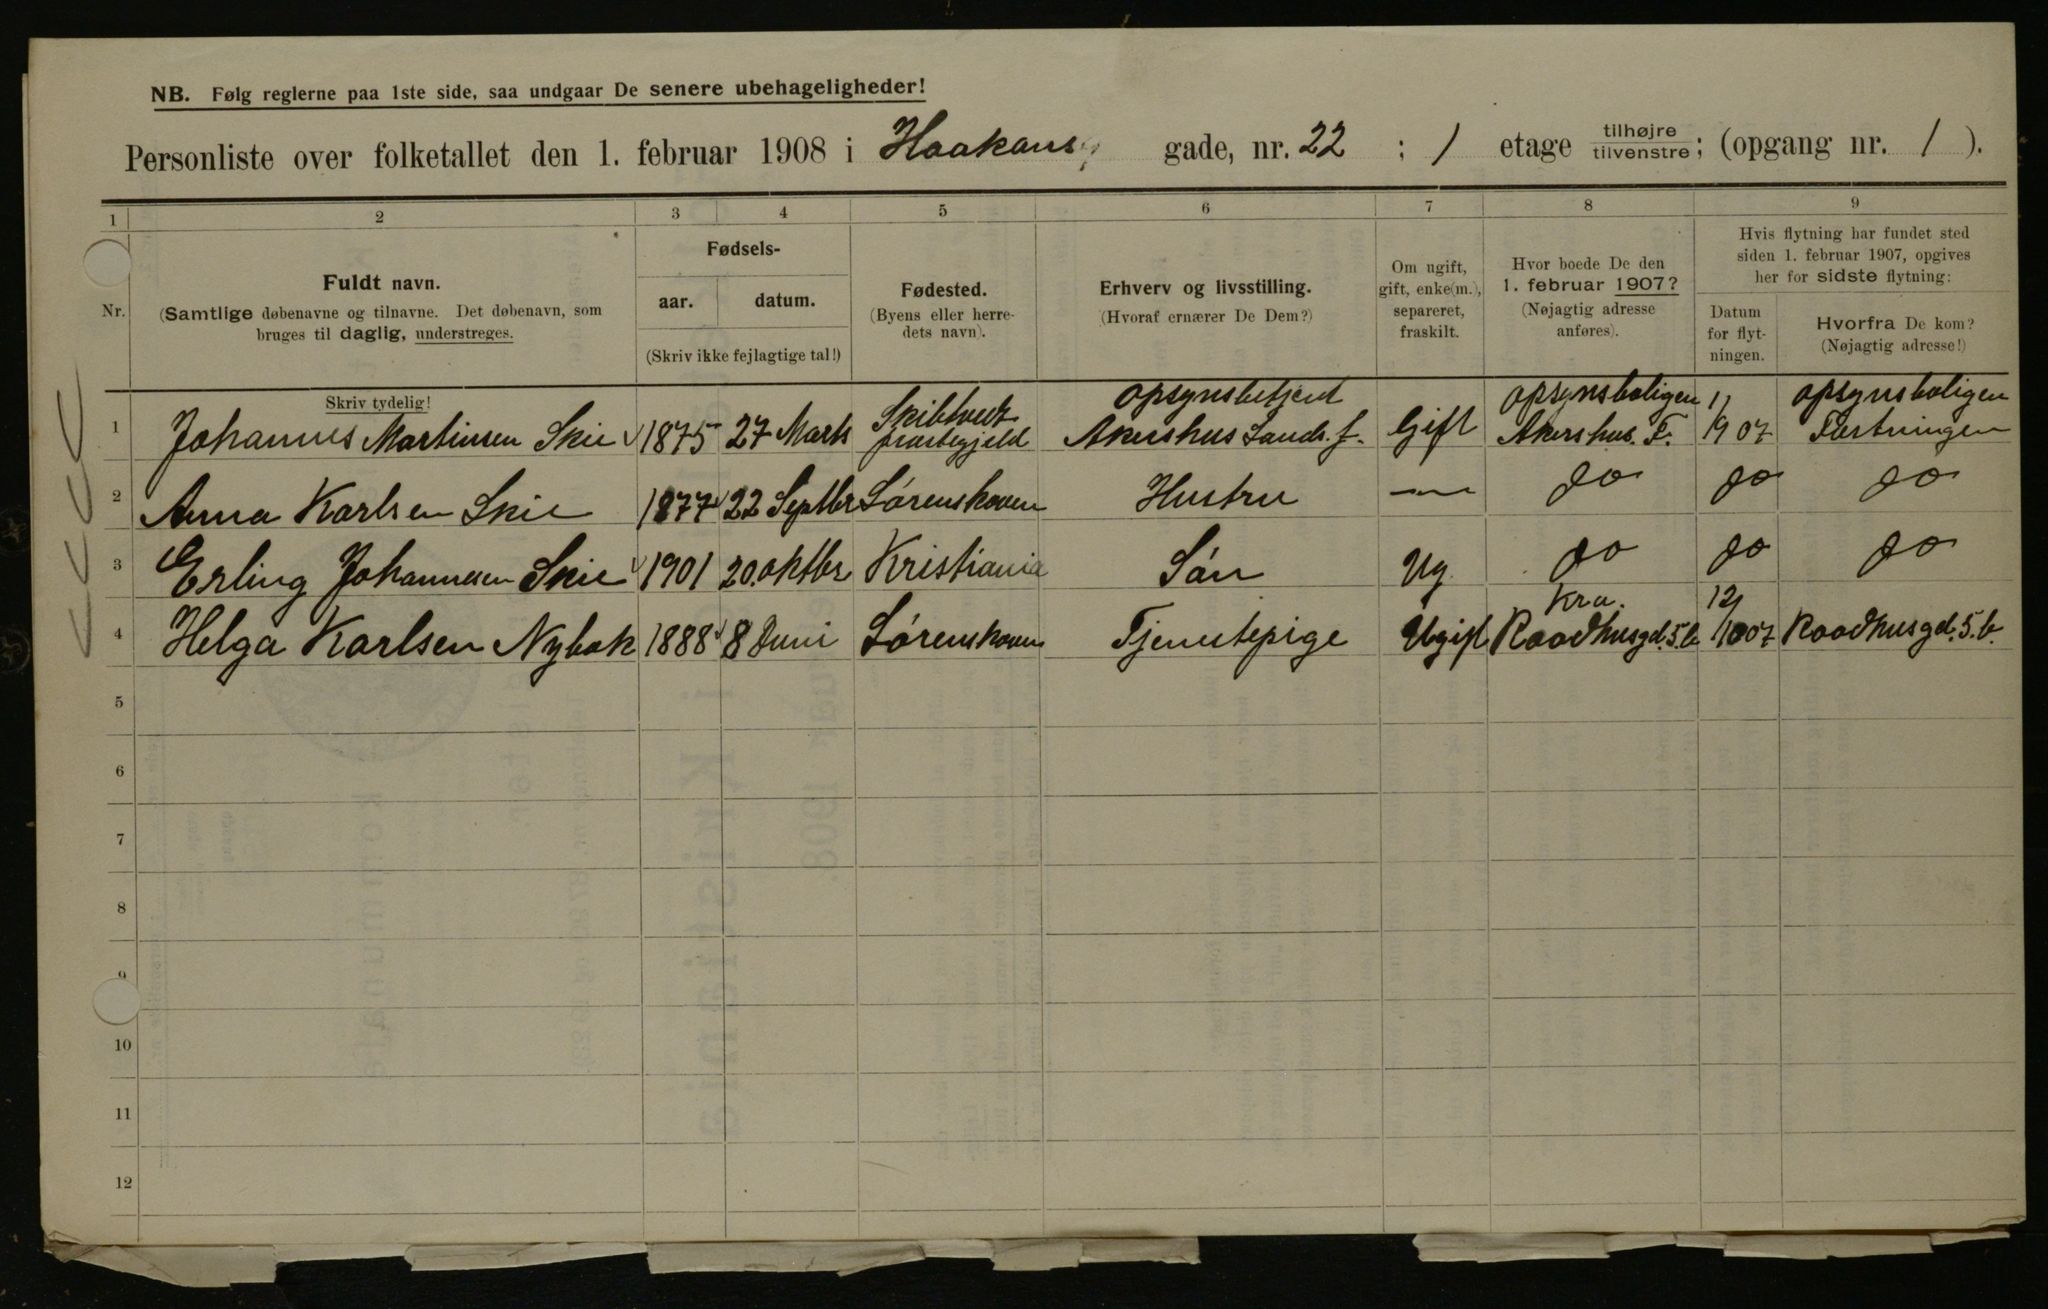 NB. Følg reglerne paa 1ste side, saa undgaar De senere ubehageligheder!
Personliste over folketallet den 1. februar 1908 i Haakons gade, nr. 22 ; 1 etage tilhøjre tilvenstre; (opgang nr. 1 ).
1 2 3 4 5 6 7 8 9
Nr.
Fuldt navn.
(Samtlige døbenavne og tilnavne. Det døbenavn, som
bruges til daglig, understreges.
Skriv tydelig!
Fødsels-
aar. datum.
(Skriv ikke fejlagtige tal!)
Fødested.
(Byens eller herre-
dets navn).
Erhverv og livsstilling.
(Hvoraf ernærer De Dem?)
Om ugift,
gift, enke(m.),
separeret,
fraskilt.
Hvor boede De den
1. februar 1907?
(Nøjagtig adresse
anføres).
Hvis flytning har fundet sted
siden 1. februar 1907, opgives
her for sidste flytning:
Datum
for flyt-
ningen.
Hvorfra De kom?
(Nøjagtig adresse!)
Skibtvedt opsynsbetjent opsynsboligen 1/ opsynsboligen
1 Johannes Martinsen Skie 1875 27 Marts præstegjeld Akershus Lands. f. Gift Akershus. F. 1907 Fæstningen
2 Anna Karlsen Skie 1877 22 Septbr Sørenskoven Hustru — do do do
3 Erling Johannesen Skie 1901 20. oktbr Kristiania Søn Ug do do do
Kra. 12/
4 Helga Karlsen Nybak 1888 8 Juni Sørenskoven Tjenstepige Ugift Raadhusgd. 5. b 1907 Raadhusgd. 5. b.
5
6
7
8
9
10
11
12